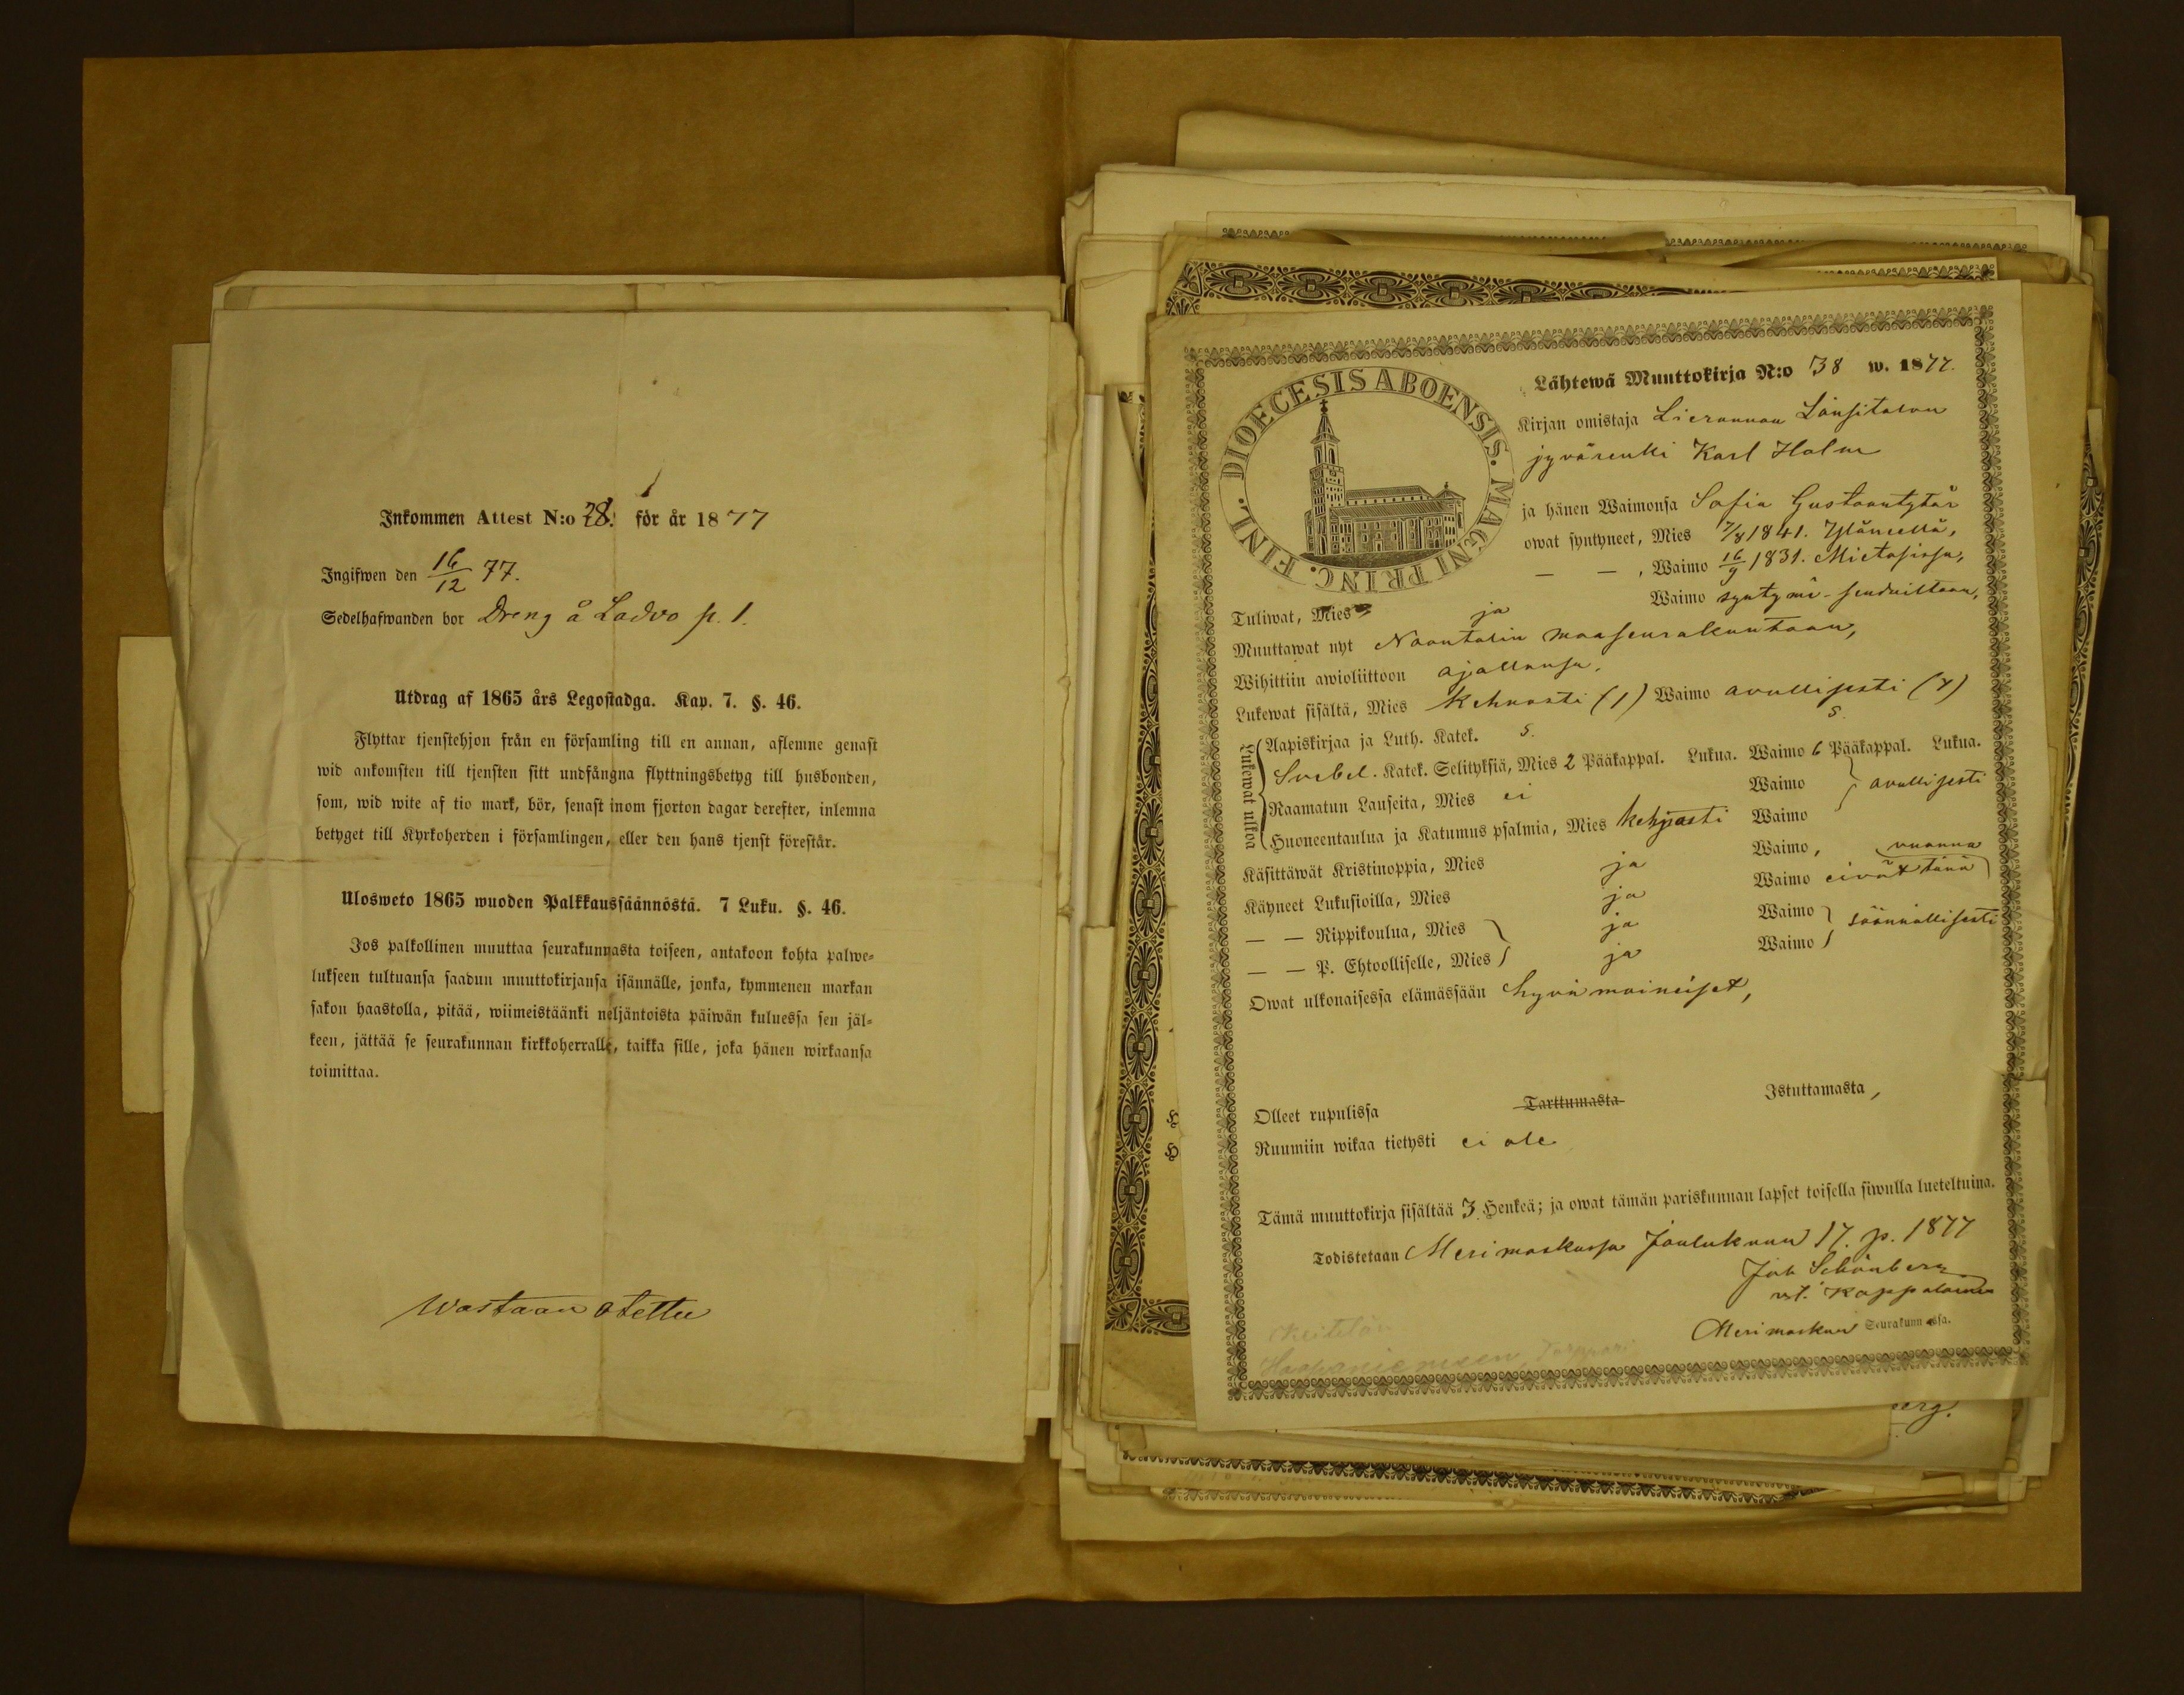 Inkommen Attest N:o 28. för år 1877
Ingifwen den 16/12 77.
Sedelhafwanden bor Dreng å Ladvo p. 1.
Utdrag af 1865 års Legostadga. Kap. 7. §. 46.
Flyttar tjenstehjon från en församling till en annan, aflemne genast
wid ankomsten till tjensten sitt undfångna flyttningsbetyg till husbonden,
som, wid wite af tio mark, bör, senast inom fjorton dagar derefter, inlemna
betyget till Kyrkoherden i församlingen, eller den hans tjenst förestår.
Ulosweto 1865 wuoden Palkkaussäännöstä. 7 Luku. §. 46.
Jos palkollinen muuttaa seurakunnasta toiseen, antakoon kohta palwe-
lukseen tultuansa saadun muuttokirjansa isännälle, jonka, kymmenen markan
sakon haastolla, pitää, wiimeistäänki neljäntoista päiwän kuluessa sen jäl-
keen, jättää se seurakunnan kirkkoherralle, taikka sille, joka hänen wirkaansa
toimittaa.
Wastaan otettu
DIOECESIS ABOENSIS. MAGNI PRINC. FINL.
Lähtewä Muuttokirja N:o 38 w. 1877.
Kirjan omistaja Lierannan Länsitalon
jyvärenki Karl Holm
ja hänen Waimonsa Sofia Gustaantytär
owat syntyneet, Mies 7/8 1841. Yläneellä,
— — , Waimo 16/9 1831. Mietoisissa,
Tuliwat, Mies ja Waimo syntymä-seuduiltaan,
Muuttawat nyt Naantalin maaseurakuntaan,
Wihittiin awioliittoon ajallansa.
Lukewat sisältä, Mies kehnosti (1) Waimo avullisesti (4)
Lukewat ulkoa
Aapiskirjaa ja Luth. Katek. s. s.
Svebel. Katek. Selityksiä, Mies 2 Pääkappal. Lukua. Waimo 6 Pääkappal. Lukua.
Raamatun Lauseita, Mies ei Waimo avullisesti
Huoneentaulua ja Katumus psalmia, Mies kehnosti Waimo
Käsittäwät Kristinoppia, Mies ja Waimo, vuonna
Käyneet Lukusioilla, Mies ja Waimo eivät tänä
— — Rippikoulua, Mies ja Waimo säännöllisesti
— — P. Ehtoolliselle, Mies ja Waimo
Owat ulkonaisessa elämässään hyvä maineiset,
Olleet rupulissa Tarttumasta Istuttamasta,
Ruumiin wikaa tietysti ei ole
Tämä muuttokirja sisältää 3 Henkeä; ja owat tämän pariskunnan lapset toisella siwulla lueteltuina.
Todistetaan Merimaskussa Joulukuun 17. p. 1877
Joh Schönberg
vst. Kappalainen
Merimaskun Seurakunnassa.
Keitelän
Haapaniemeen, Torppari
H
H
erg.